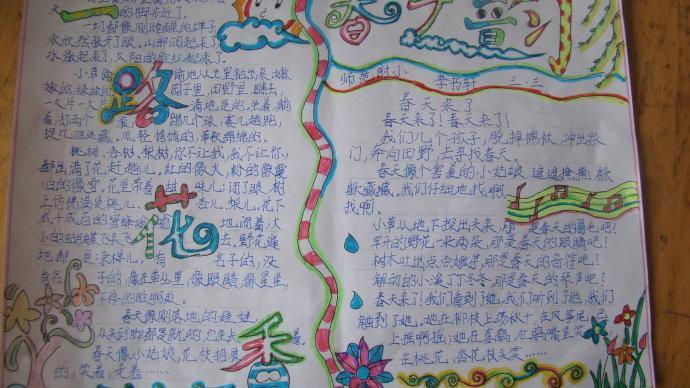 的脚步近了。
一切都像刚睡醒的样子
欣欣然张开了眼。山朗润起来了
水涨起来了，太阳的脸红起来了。
小草偷偷地从土里钻出来，嫩
嫩的，绿绿的 园子里，田野里，瞧去
一大片一大片 满地是的。坐着，躺
着，打两个滚 踢几脚球，赛几趟跑，
捉几回迷藏。风轻悄悄的，草软绵绵的。
桃树、杏树、梨树，你不让我，我不让你，
都开满了花赶趟儿。红的像火，粉的像霞
白的像雪。花里带着甜味儿；闭了眼，树
上仿佛满是桃儿、杏儿、梨儿。花下
成千成百的蜜蜂嗡嗡地闹着，大
小的蝴蝶飞来飞去。野花遍
地都是：杂样儿，有名字的，没
名字的，像眼睛，像星星，
春天像刚落地的娃娃，
从头到脚都是新的，它生长着。
春天像小姑娘，花枝招展
的，笑着，走着……
春
花
春
童
师范附小 李书轩 三.三
春天来了
春天来了！春天来了！
我们几个孩子，脱掉棉袄，冲出家
门，奔向田野，去寻找春天。
春天像个害羞的小姑娘，遮遮掩掩，躲
躲藏藏。我们仔细地找啊
找啊。
小草从地下探出头来，那是春天的眉毛吧？
早开的野花一朵两朵，那是春天的眼睛吧？
树木吐出点点嫩芽，那是春天的音符吧？
解冻的小溪丁丁冬冬，那是春天的琴声吧？
春天来了！我们看到了她，我们听到了她，我们
触到了她。她在柳枝上荡秋千，在风筝尾巴
上摇啊摇；她在喜鹊、杜鹃嘴里
在桃花、杏花枝头笑……